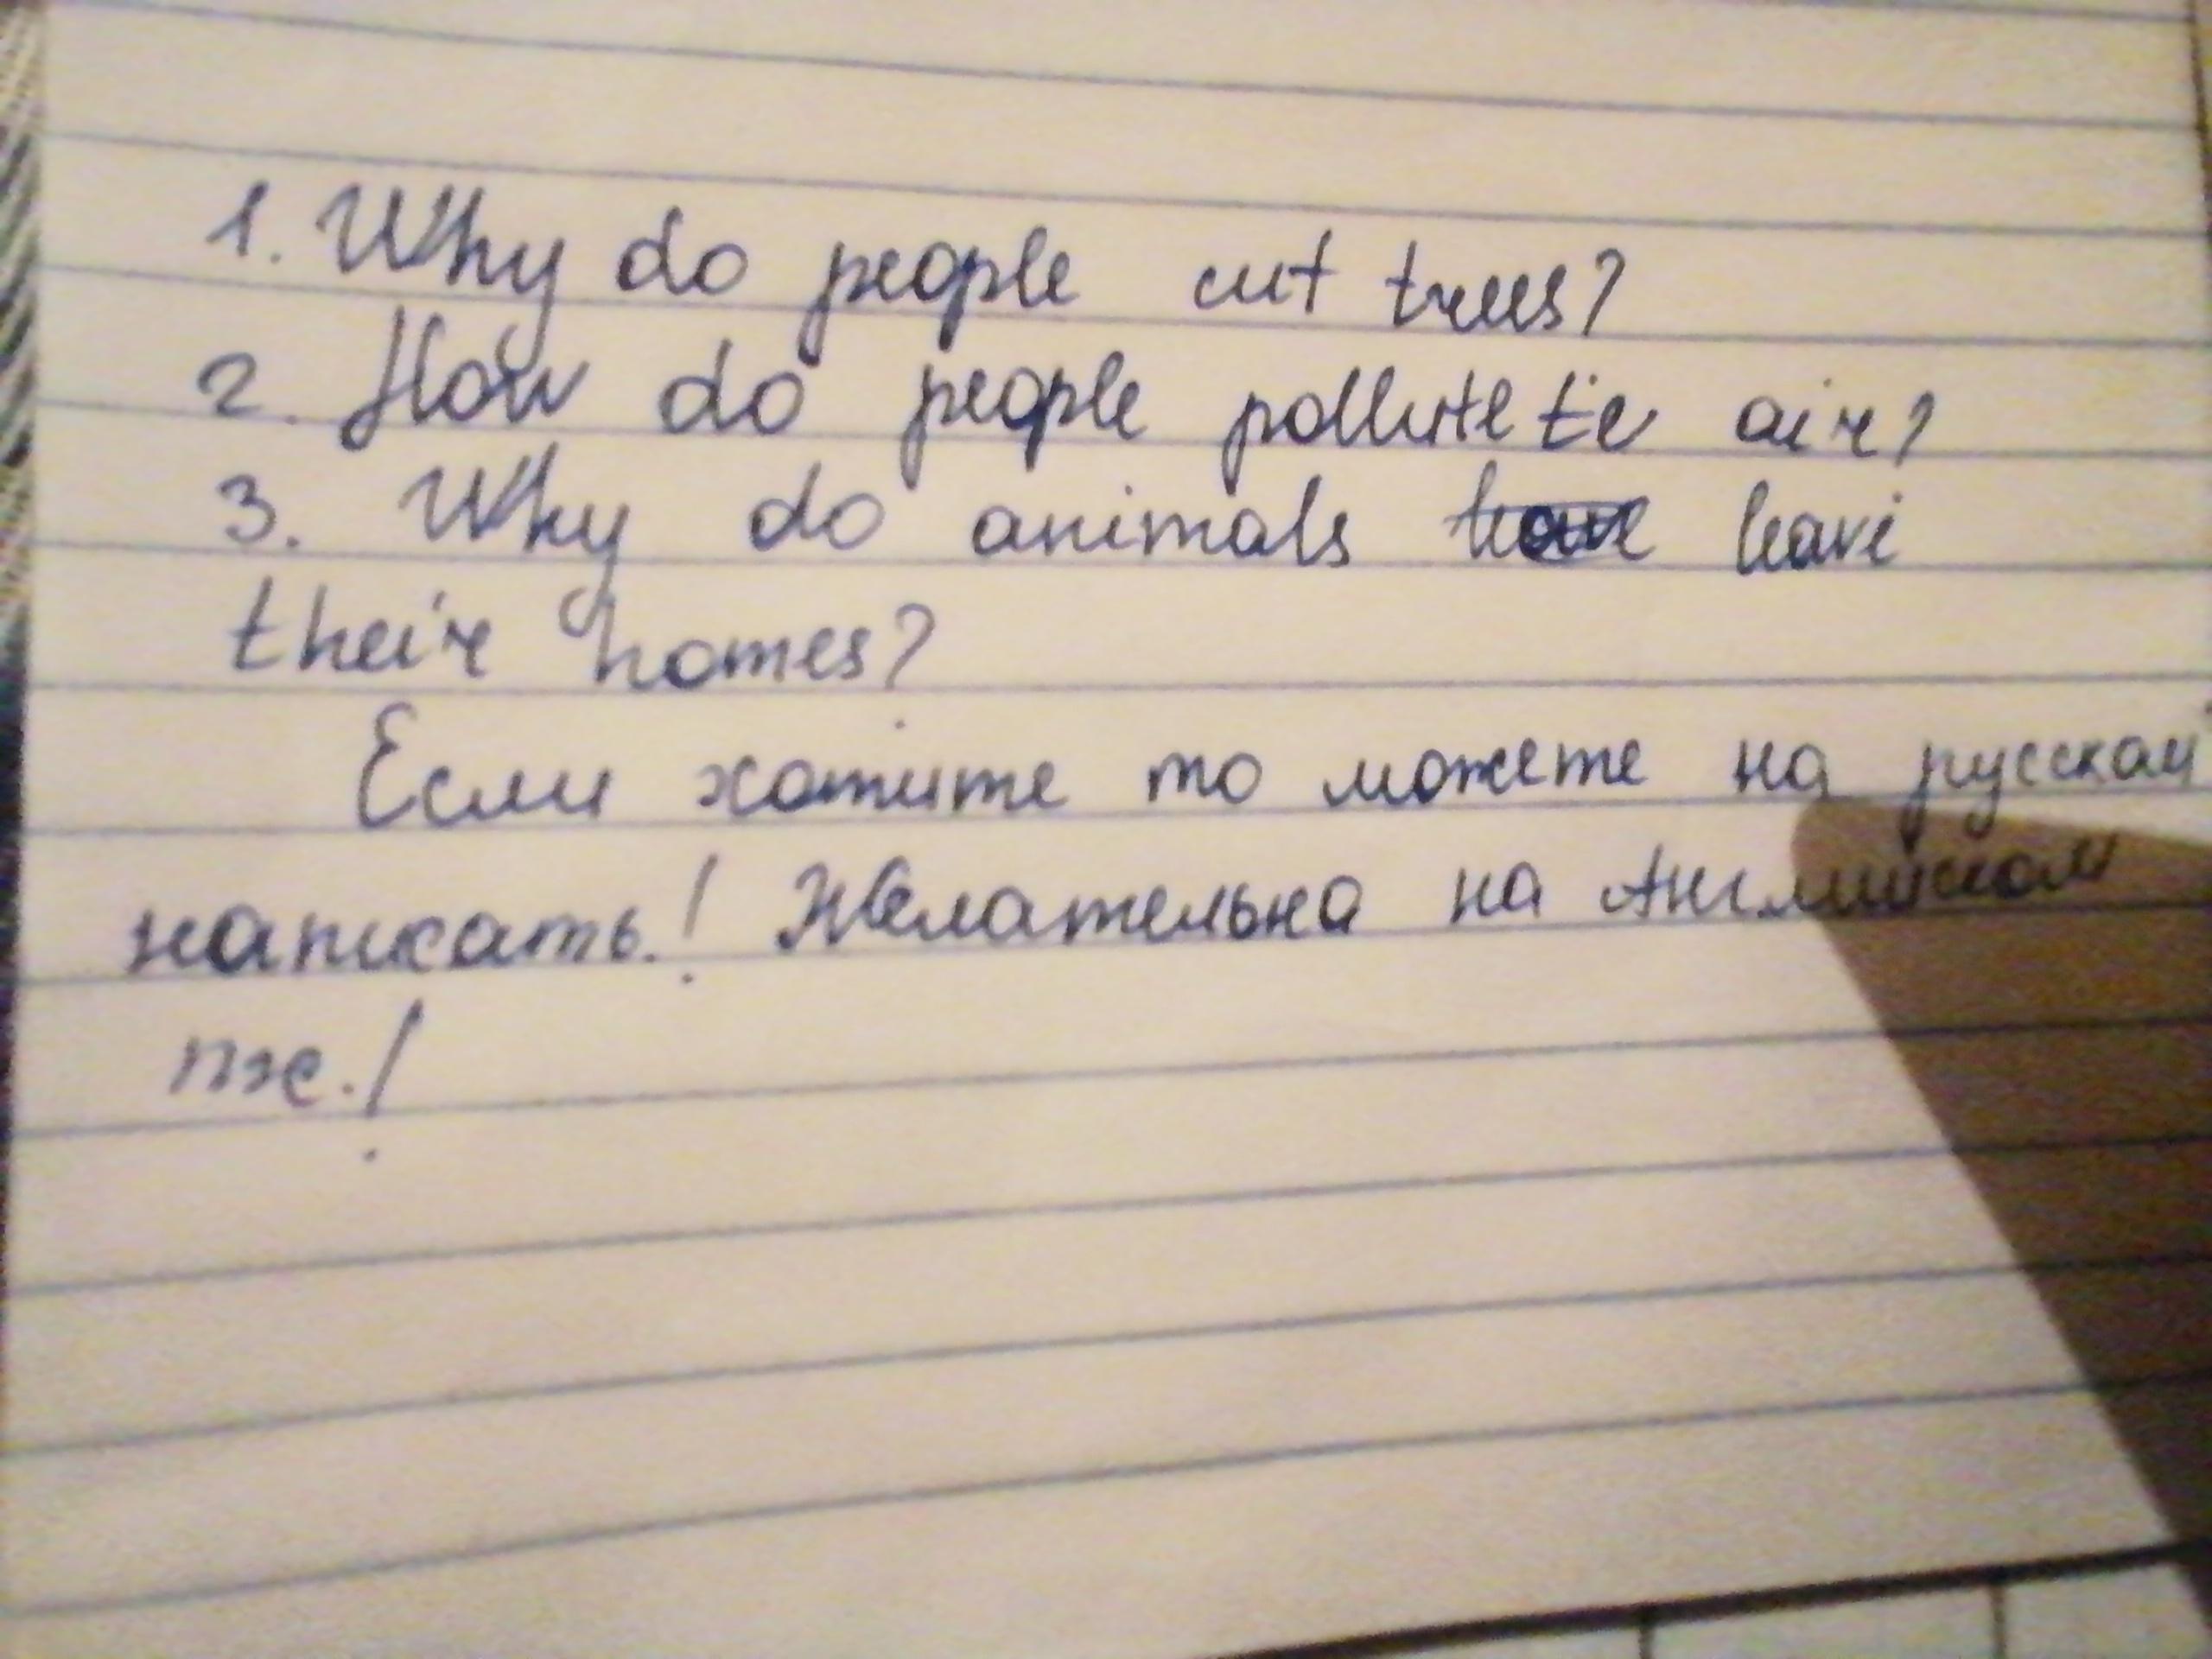 1. Why do people cut trees?
2. How do people pollute te air?
3. Why do animals leave
their homes?
Если хотите то можете на русском
написать.! Желательна на Английском
пж.!